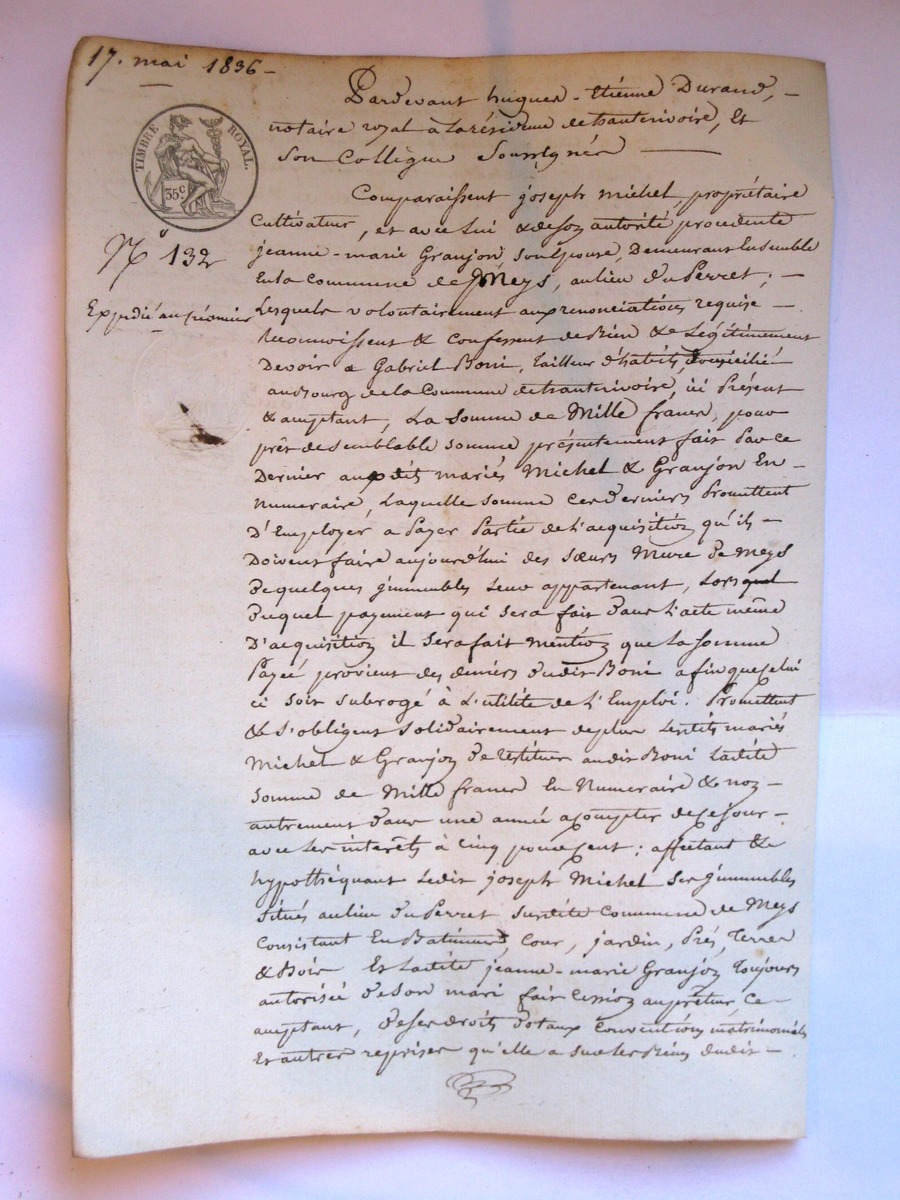 17. mai 1836 -
TIMBRE ROYAL.
35 c
N.o 132
Expédié au créancier
Pardevant hugues-Etienne Durand, -
notaire royal à La résidence de hauterivoire, Et
Son Collègue Soussignés
Comparaissent joseph michel, propriétaire
Cultivateur, et avec Lui & de Son autorité procedente
jeanne-marie Granjon, Son Epouse, Demeurant Ensemble
En La Commune de Meys, au lieu du Perret; -
Lesquels volontairement aux renonciations requise -
Reconnoissent & confessent de Bien & Légitimement
Devoir a Gabriel Boni, tailleur d'habits, domicilié
au Bourg de La Commune de hauterivoire, ici Présent
& acceptant, La Somme de Mille francs, pour
prêt de Semblable Somme présentement fait Par Ce
Dernier aux dits mariés Michel & Granjon En -
Numeraire, Laquelle Somme Ces Derniers Promettent
D'Employer a Payer Partie de L'acquisition qu'ils -
Doivent faire aujourd'hui des Sœurs Mure de Meys
De quelques immeubles Leur appartenant, Lors
Duquel payement qui Sera fait Dans L'acte même
D'acquisition il Sera fait mention que La Somme
Payée provient des deniers dudit Boni afin que Celui
ci Soit Subrogé à L'utilité de L'Emploi. Promettent
& S'obligent Solidairement de plus Lesdits mariés
Michel & Granjon De restituer audit Boni Ladite
Somme de Mille francs En Numeraire & non -
autrement Dans une année a Compter de Ce jour -
avec Les intérêts à Cinq pour Cent; affectant &
hypothéquant Ledit joseph Michel Ses immeubles
Situés au lieu du Perret Susdite Commune de Meys
Consistant En Batiments, Cour, jardin, Prés, Terres
& Bois Et Ladite jeanne-marie Granjon Toujours
autorisée De Son mari fait Cession au prêteur Ce -
acceptant, De Ses droits Dotaux Conventions matrimoniales
Et autres reprises qu'elle a Sur Les Biens dudit -